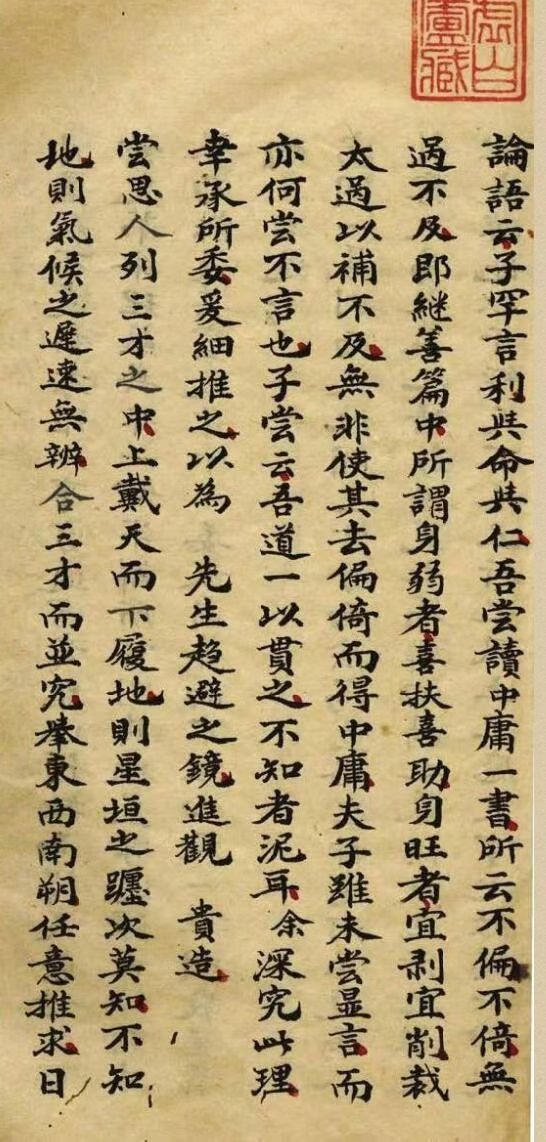 論語云子罕言利與命與仁吾嘗讀中庸一書所云不偏不倚無
過不及即継善篇中所謂身弱者喜扶喜助身旺者宜剥宜削裁
太過以補不及無非使其去偏倚而得中庸夫子雖未嘗显言而
亦何嘗不言也子嘗云吾道一以貫之不知者泥耳余深究此理
幸承所委爰細推之以為 先生趋避之鏡進觀 貴造
嘗思人列三才之中上戴天而下履地則星垣之躔次莫知不知
地則氣候之遲速無辦合三才而並究舉東西南朔任意推求日